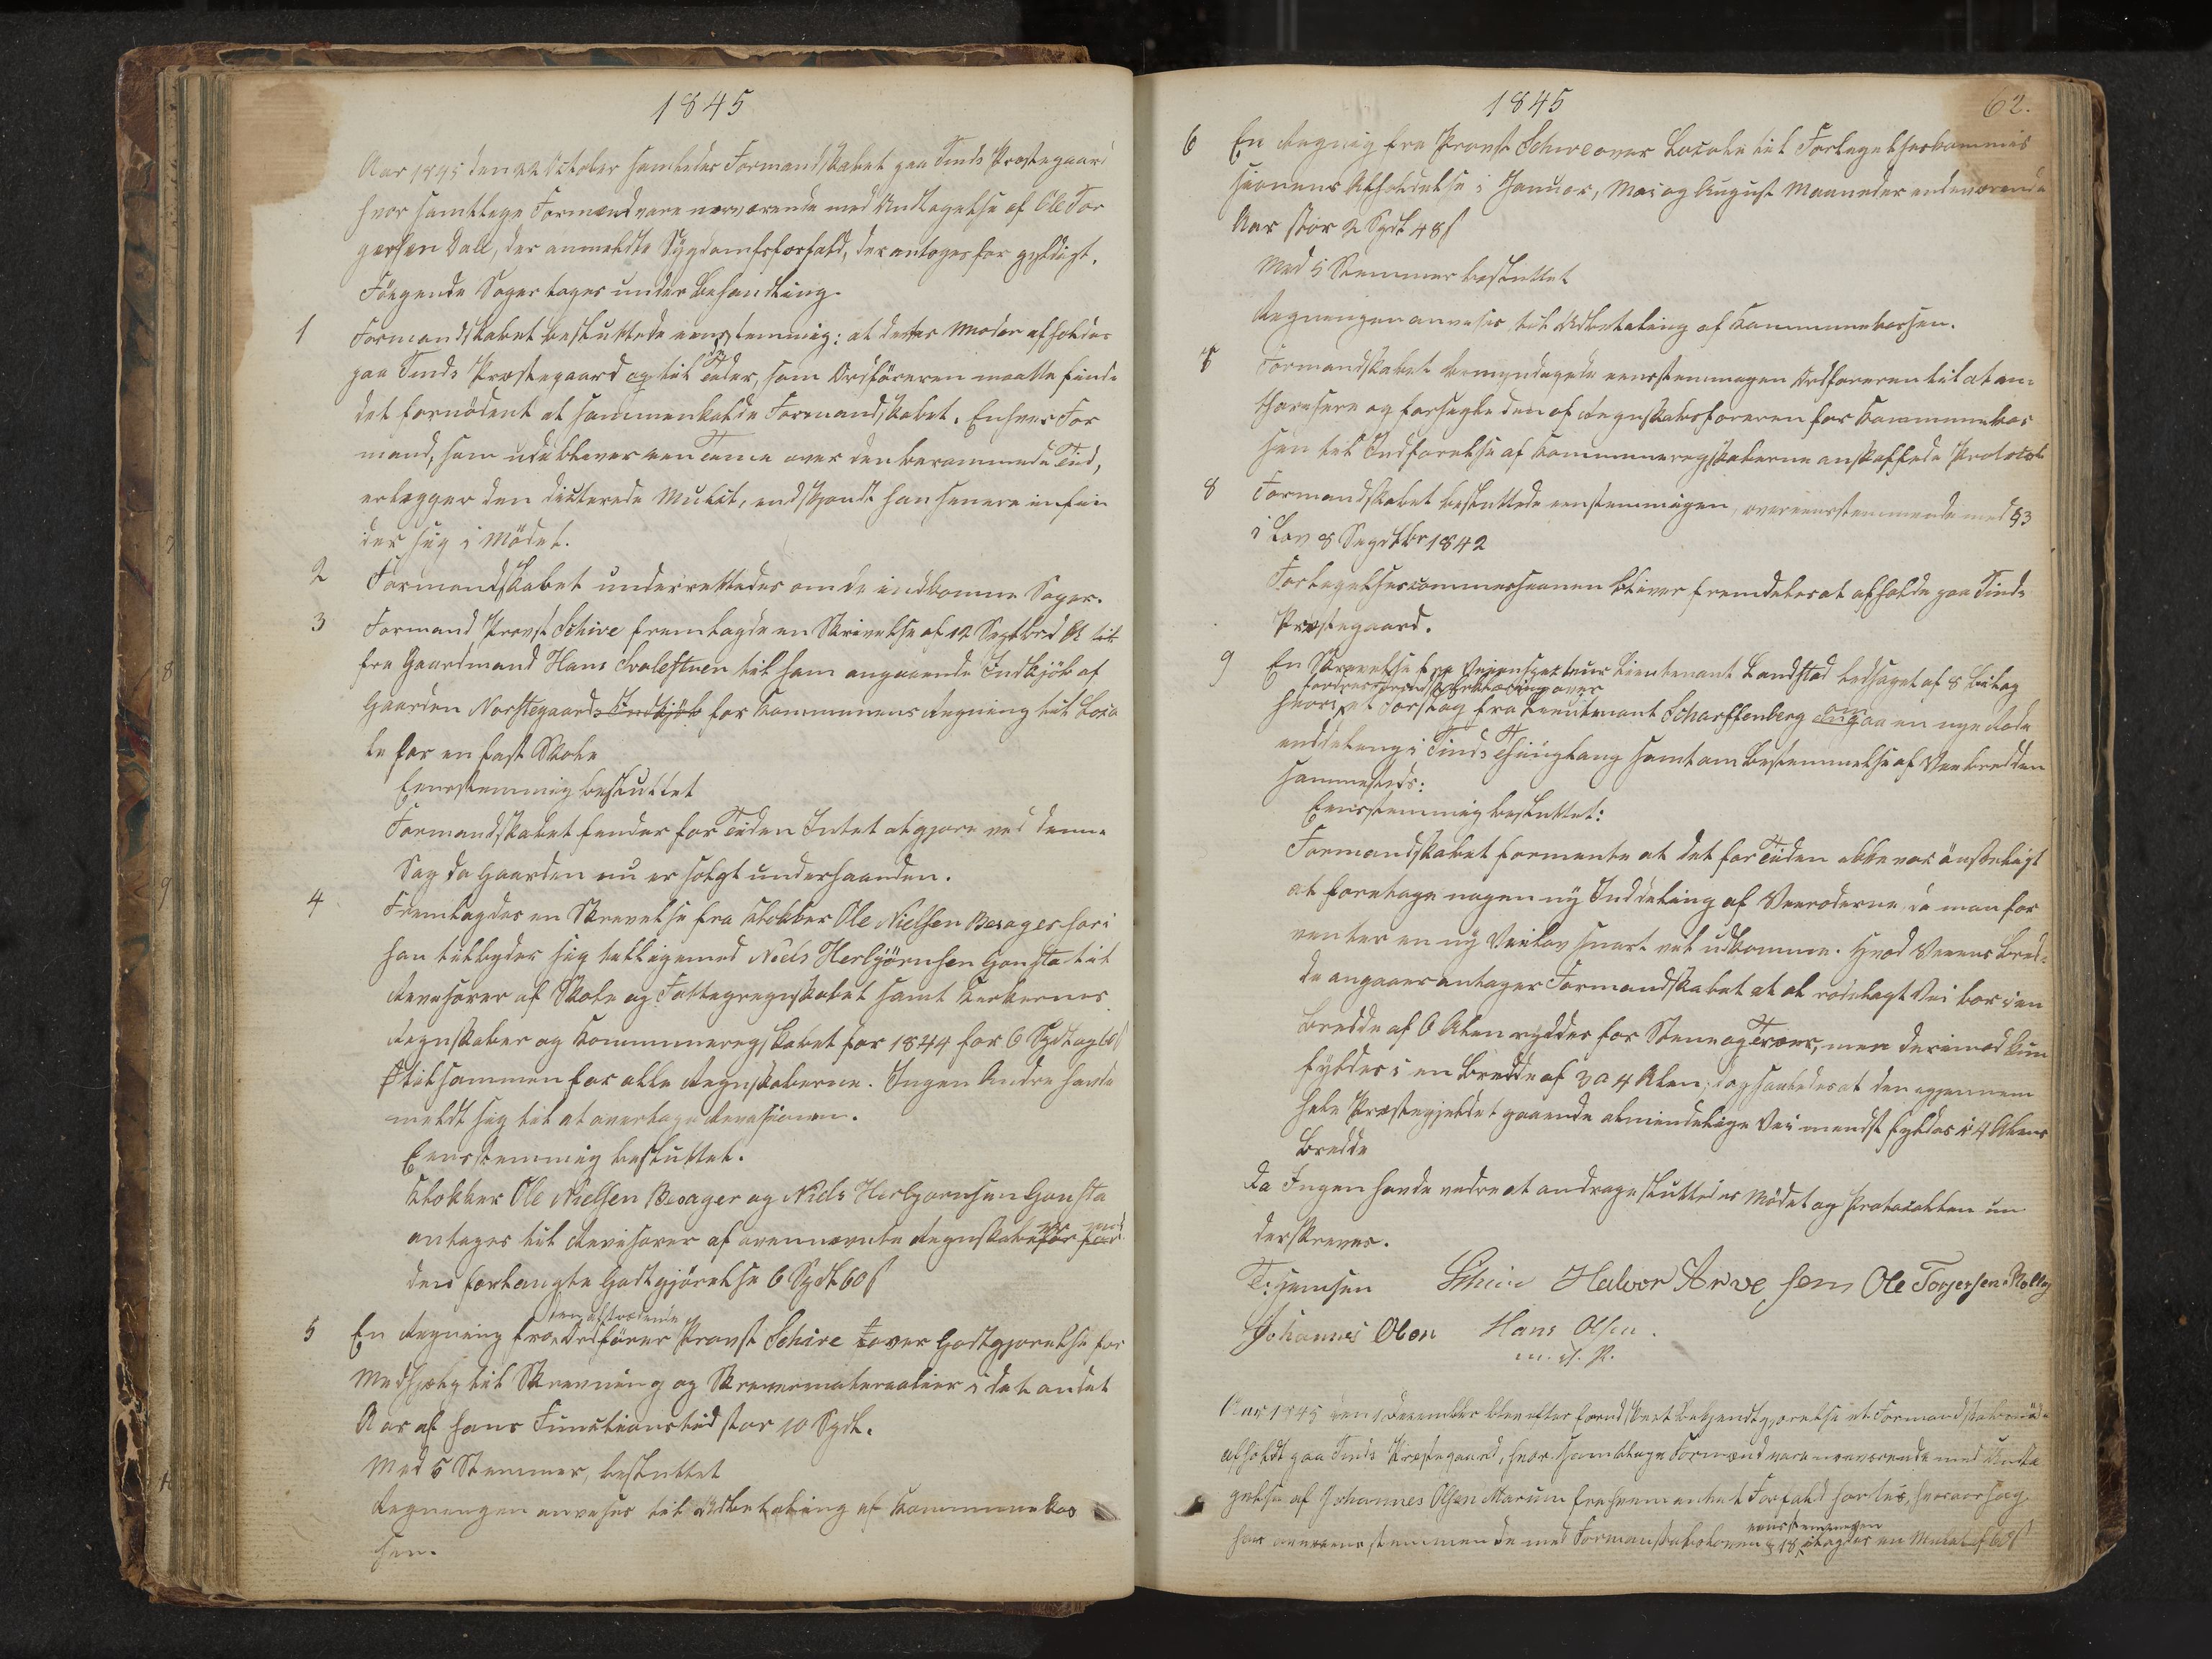 1845
Aar 1845 den 22 October samledes Formandskabet paa Tinds Præstegaard
hvor samtlige Formænd vare nærværende med Undtagelse af Ole Tor
gersen Dale, der anmeldte Sygdomsforfald, der antoges for gyldigt.
Følgende Sager toges under Behandling.
1 Formandskabet besluttede eenstemmig: at dettes Møder afholdes
paa Tinds Præstegaard og til Tider, som Ordføreren maatte finde
det fornødent at sammenkalde Formandskabet. Enhver For
mand, som udebliver een Time over den berammede Tid,
erlægger den dicterede Mulct, endskjøndt han senere infin
der sig i Mødet.
2 Formandskabet underrettedes om de indkomne Sager.
3 Formand Provst Schive fremlagde en Skrivelse af 12 Septbr d A til
fra Gaardmand Hans Svalestuen til ham angaaende Indkjøb af
Gaarden Norstegaards Indkjøb for Kommunens Regning til Loca
le for en fast Skole
Eenstemmig besluttet
Formandskabet finder for Tiden Intet at gjøre ved denne
Sag da Gaarden nu er solgt underhaanden.
4 Fremlagdes en Skrivelse fra Klokker Ole Nielsen Besager hvori
han tilbyder sig tilligemed Niels Herbjørnsen Gonsta til
Revisorer af Skole og Fattigregnskabet samt Kirkernes
Regnskaber og Kommuneregskabet for 1844 for 6 Spd og 60 ß
tilsammen for alle Regnskaberne. Ingen Andre havde
meldt sig til at overtage Revisionen.
Eenstemmig besluttet.
Klokker Ole Nielsen Besager og Niels Herbjornsen Gonsta
antages til Revisorer af ovennævnte Regnskaber for mod
den forlangte Godtgjørelse 6 Spd 60 ß
5 En Regning fra den afträdende Ordfører Provst Schive over Godtgjørelse for
Medhjelp til Skrivning og Skrivematerialier i det andet
Aar af hans Functionstid stor 10 Spd.
Med 5 Stemmer, besluttet
Regningen anvises til Udbetaling af Kommunekas
sen.
1845
62.
6 En Regnig fra Provst Schive over Locale til Forligelseskommis
sionens Afholdelse i Januar, Mai og August Maaneder indeværende
Aar stor 2 Spd 48 ß
Med 5 Stemmer besluttet
Regningen anvises til Udbetaling af Kommunekassen.
7 Formandskabet bemyndigede eenstemmigen Ordføreren til at au-
thorisere og forsegle den af Regnskabsføreren for Kommunekas
sen til Indførelse af Kommuneregskaberne anskaffede Protocol
8 Formandskabet besluttede eenstemmigen, overeensstemmende med § 3
i Lov 8 Septbr 1842
Forligelsescommissionen bliver fremdeles at afholde paa Tinds
Præstegaard.
9 En Skrivelse fra Veiinspecteur Lieutenant Landstad ledsaget af 8 Bilag
fordres Formandskabets Erklæring over
hvori et Forslag fra Lieutenant Scharffenberg om en nye Rode
inddeling i Tinds Thinglaug samt om Bestemmelse af Veibredden
sammesteds:
Eenstemmig besluttet:
Formandskabet formente at det for Tiden ikke var ønskeligt
at foretage nogen ny Inddeling af Veiroderne, da man for
venter en ny Veilov snart vil udkomme. Hvad Veiens Bred-
de angaaer antager Formandskabet at al rodelagt Vei bør i en
Bredde af 6 Alen ryddes for Steene og Træer, men derimod kun
fyldes i en Bredde af 3 a 4 Alen; dog saaledes at den igjennem
hele Præstegjeldet gaaende almindelige Vei mindst fyldes i 4 Alens
Bredde
Da Ingen havde videre at andrage sluttedes Mødet og Protocollen un
derskreves.
T. Jensen Schive Halvor Arvesen Ole Torjersen Molloy
Johannes Olsen Hans Olsen
m. i. P.
Aar 1845 den 1 December blev efter forudskeet Bekjendtgjørelse et Formandskabsmøde
afholdt paa Tinds Præstegaard, hvor samtlige Formænd vare nærværende med Undta
gelse af Johannes Olsen Marum hvis anmeldt Forfald
han overeensstemmende med Formandskabsloven § 18 eenstemmigen ilagdes en Mulct af 60 ß